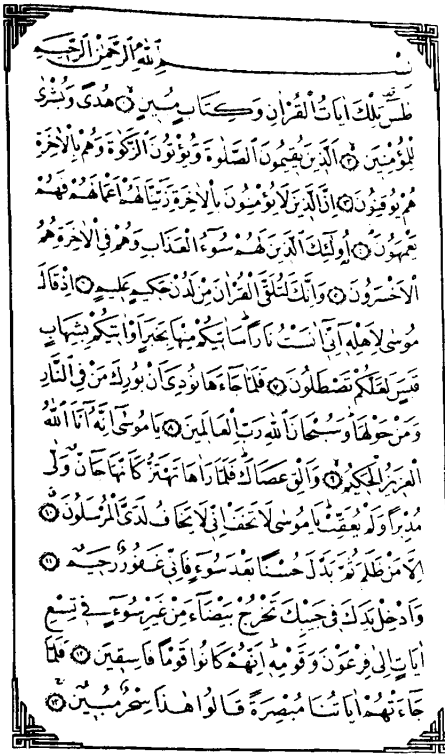 بِسْمِ اللهِ الرَّحْمٰنِ الرَّحِيمِ
طٰسۤ تِلْكَ اٰيَاتُ الْقُرْاٰنِ وَكِتَابٍ مُبِينٍۙ ﴿١﴾ هُدًى وَبُشْرٰى
لِلْمُؤْمِنِينَۙ ﴿٢﴾ اَلَّذِينَ يُقِيمُونَ الصَّلٰوةَ وَيُؤْتُونَ الزَّكٰوةَ وَهُمْ بِالْاٰخِرَةِ
هُمْ يُوقِنُونَ ﴿٣﴾ اِنَّ الَّذِينَ لَا يُؤْمِنُونَ بِالْاٰخِرَةِ زَيَّنَّا لَهُمْ اَعْمَالَهُمْ فَهُمْ
يَعْمَهُونَۜ ﴿٤﴾ اُولٰۤئِكَ الَّذِينَ لَهُمْ سُوۤءُ الْعَذَابِ وَهُمْ فِي الْاٰخِرَةِ هُمُ
الْاَخْسَرُونَ ﴿٥﴾ وَاِنَّكَ لَتُلَقَّى الْقُرْاٰنَ مِنْ لَدُنْ حَكِيمٍ عَلِيمٍ ﴿٦﴾ اِذْ قَالَ
مُوسٰى لِاَهْلِهِ اِنِّي اٰنَسْتُ نَارًا سَاٰتِيكُمْ مِنْهَا بِخَبَرٍ اَوْ اٰتِيكُمْ بِشِهَابٍ
قَبَسٍ لَعَلَّكُمْ تَصْطَلُونَ ﴿٧﴾ فَلَمَّا جَاۤءَهَا نُودِيَ اَنْ بُورِكَ مَنْ فِي النَّارِ
وَمَنْ حَوْلَهَا وَسُبْحَانَ اللهِ رَبِّ الْعَالَمِينَ ﴿٨﴾ يَا مُوسٰۤى اِنَّهُ اَنَا اللهُ
الْعَزِيزُ الْحَكِيمُۙ ﴿٩﴾ وَاَلْقِ عَصَاكَ فَلَمَّا رَاٰهَا تَهْتَزُّ كَاَنَّهَا جَاۤنٌّ وَلّٰى
مُدْبِرًا وَلَمْ يُعَقِّبْ يَا مُوسٰى لَا تَخَفْ اِنِّي لَا يَخَافُ لَدَيَّ الْمُرْسَلُونَۗ ﴿١٠﴾
اِلَّا مَنْ ظَلَمَ ثُمَّ بَدَّلَ حُسْنًا بَعْدَ سُوۤءٍ فَاِنِّي غَفُورٌ رَحِيمٌ ﴿١١﴾
وَاَدْخِلْ يَدَكَ فِي جَيْبِكَ تَخْرُجْ بَيْضَاۤءَ مِنْ غَيْرِ سُوۤءٍ فِي تِسْعِ
اٰيَاتٍ اِلٰى فِرْعَوْنَ وَقَوْمِهِ اِنَّهُمْ كَانُوا قَوْمًا فَاسِقِينَ ﴿١٢﴾ فَلَمَّا
جَاۤءَتْهُمْ اٰيَاتُنَا مُبْصِرَةً قَالُوا هٰذَا سِحْرٌ مُبِينٌۚ ﴿١٣﴾